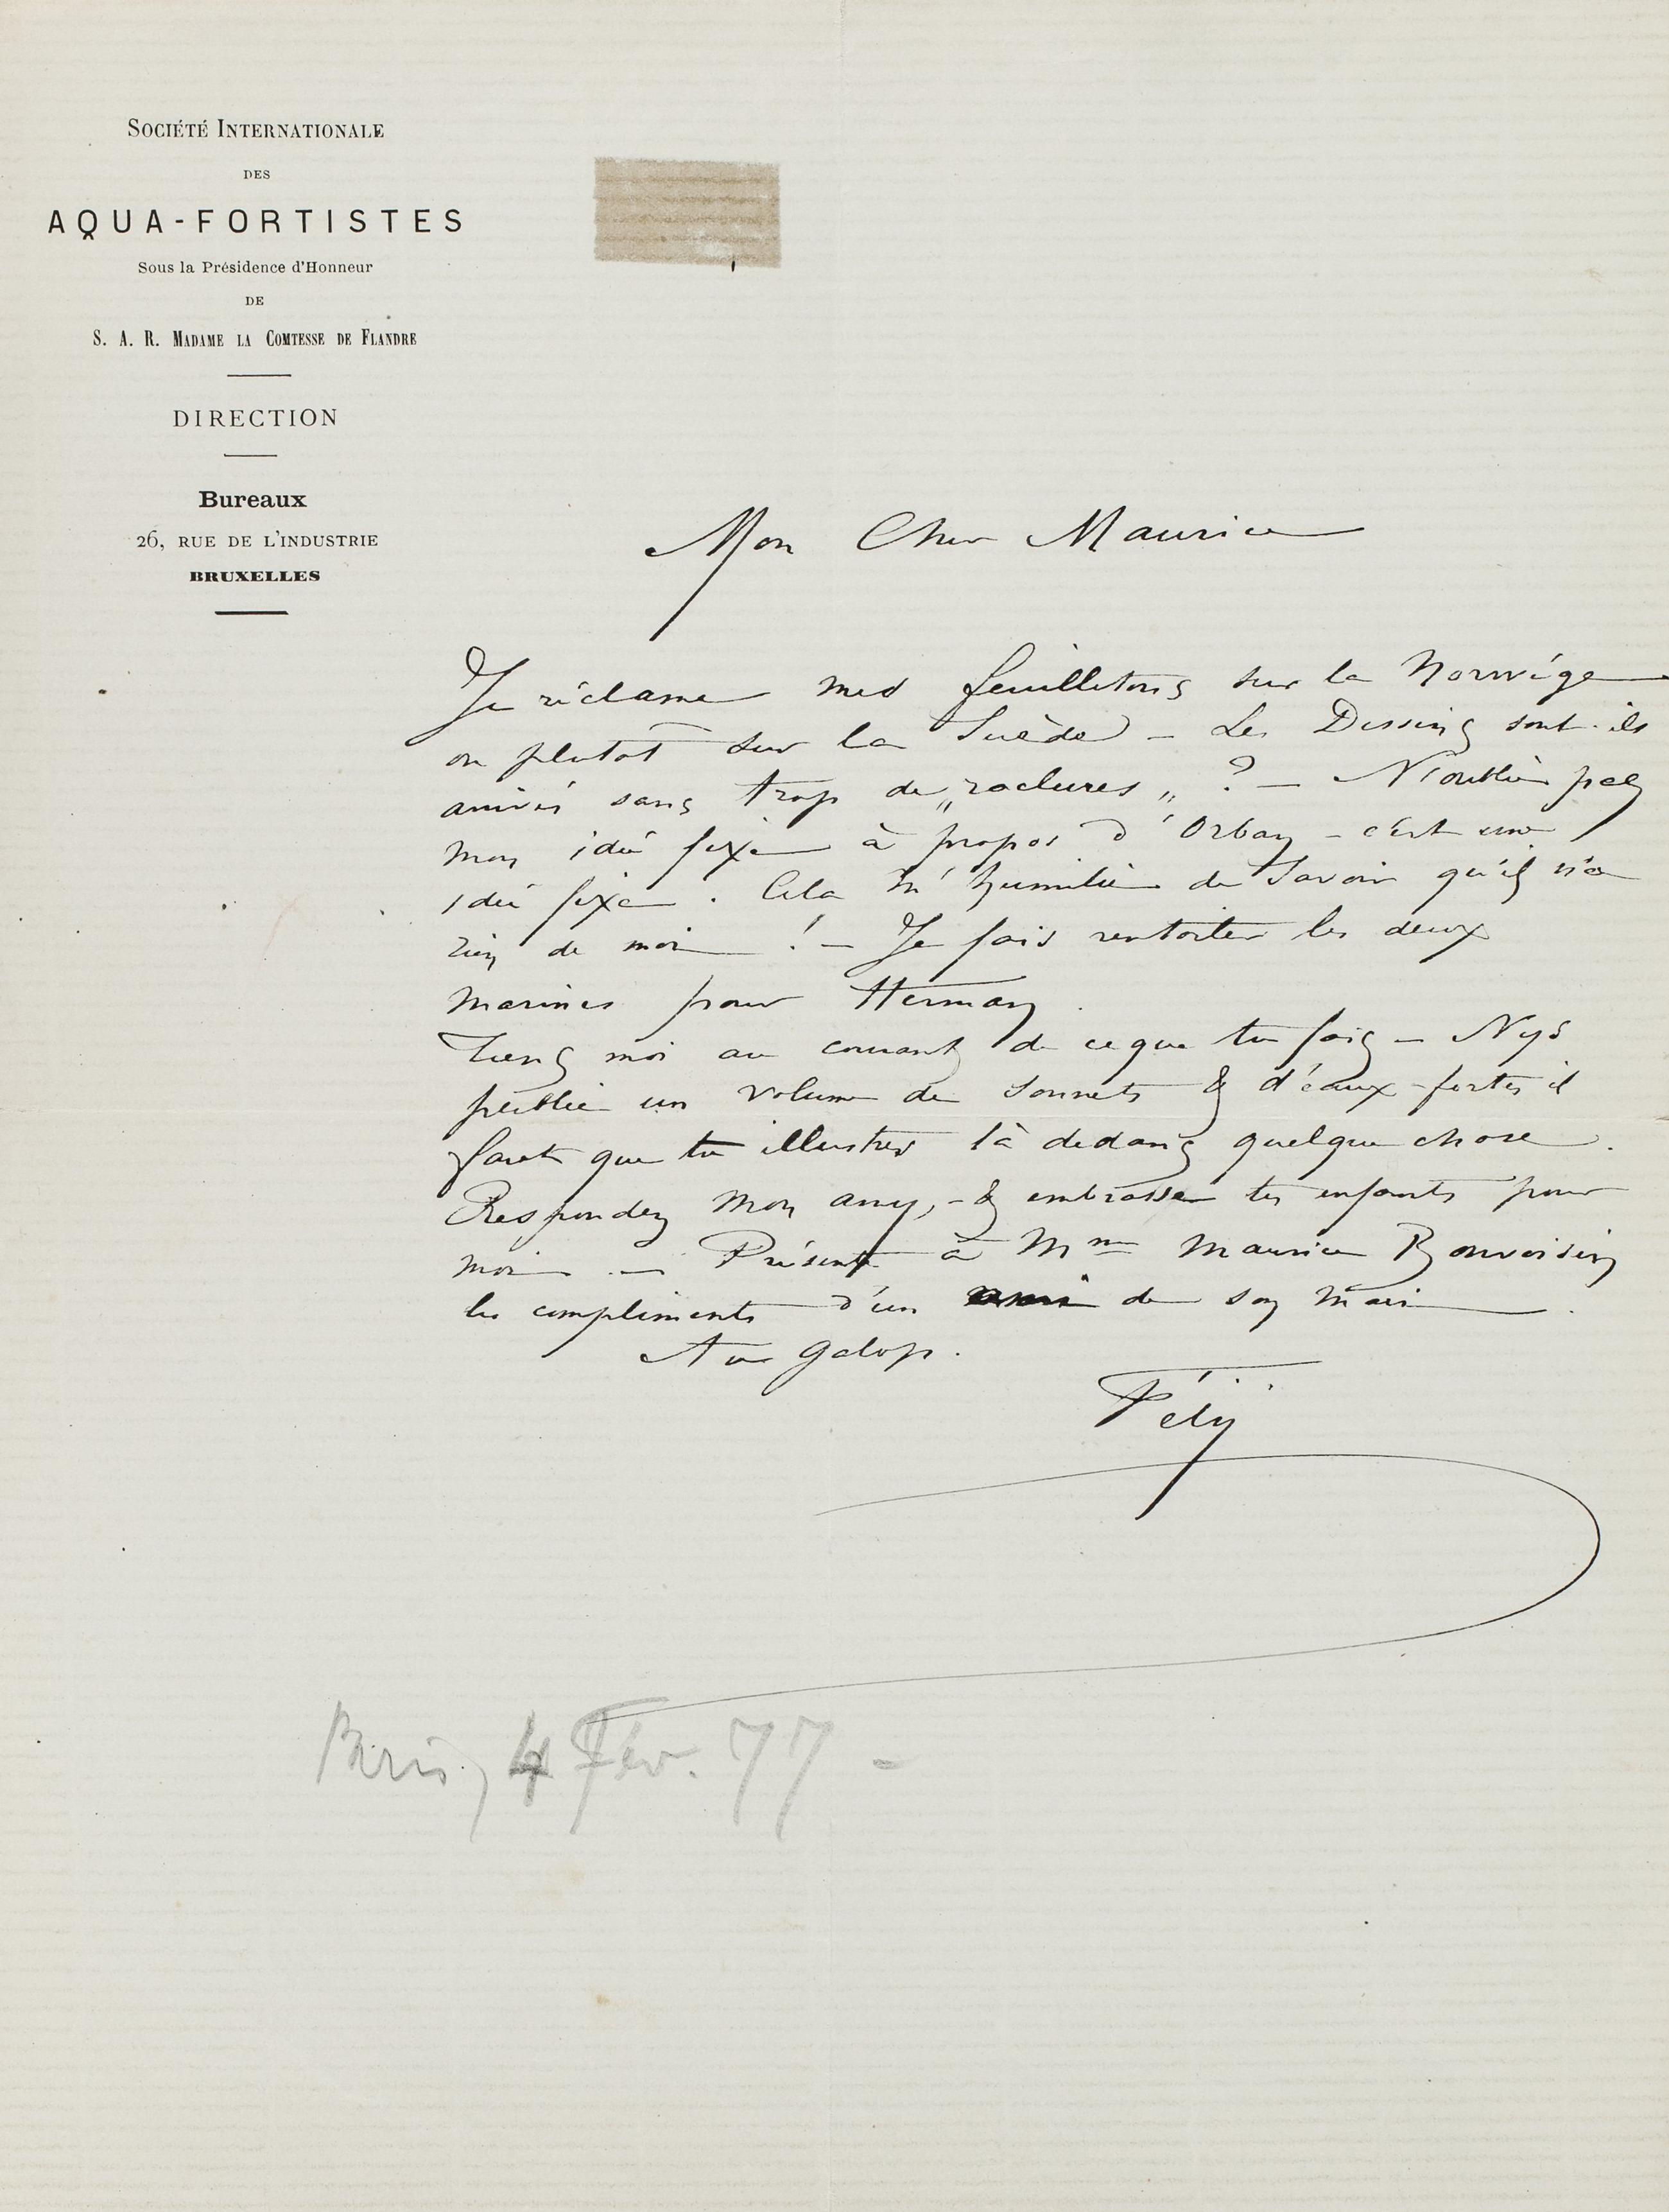 SOCIÉTÉ INTERNATIONALE
DES
AQUA-FORTISTES
Sous la Présidence d'Honneur
DE
S. A. R. MADAME LA COMTESSE DE FLANDRE
DIRECTION
Bureaux
26, RUE DE L'INDUSTRIE
BRUXELLES
Mon Cher Maurice
Je réclame mes feuilletons sur la Norwége
ou plutôt sur la Suède – Les Dessins sont-ils
arrivés sans trop de „raclures„ ? – N'oublie pas
mon idée fixe à propos d'Orban – c'est une
idée fixe. Cela m'humilie de savoir qu'il n'a
rien de moi ! – Je fais rentoiler les deux
marines pour Herman.
Tiens moi au courant de ce que tu fais – Nys
publie un volume de sonnets & d'eaux-fortes il
faut que tu illustres là dedans quelque chose.
Respondez mon amy, – & embrasse tes enfants pour
moi. — Présente à Mme Maurice Bonvoisin
les compliments d'un ami de son mari.
Au galop.
Fély
4 Fév. 77 –